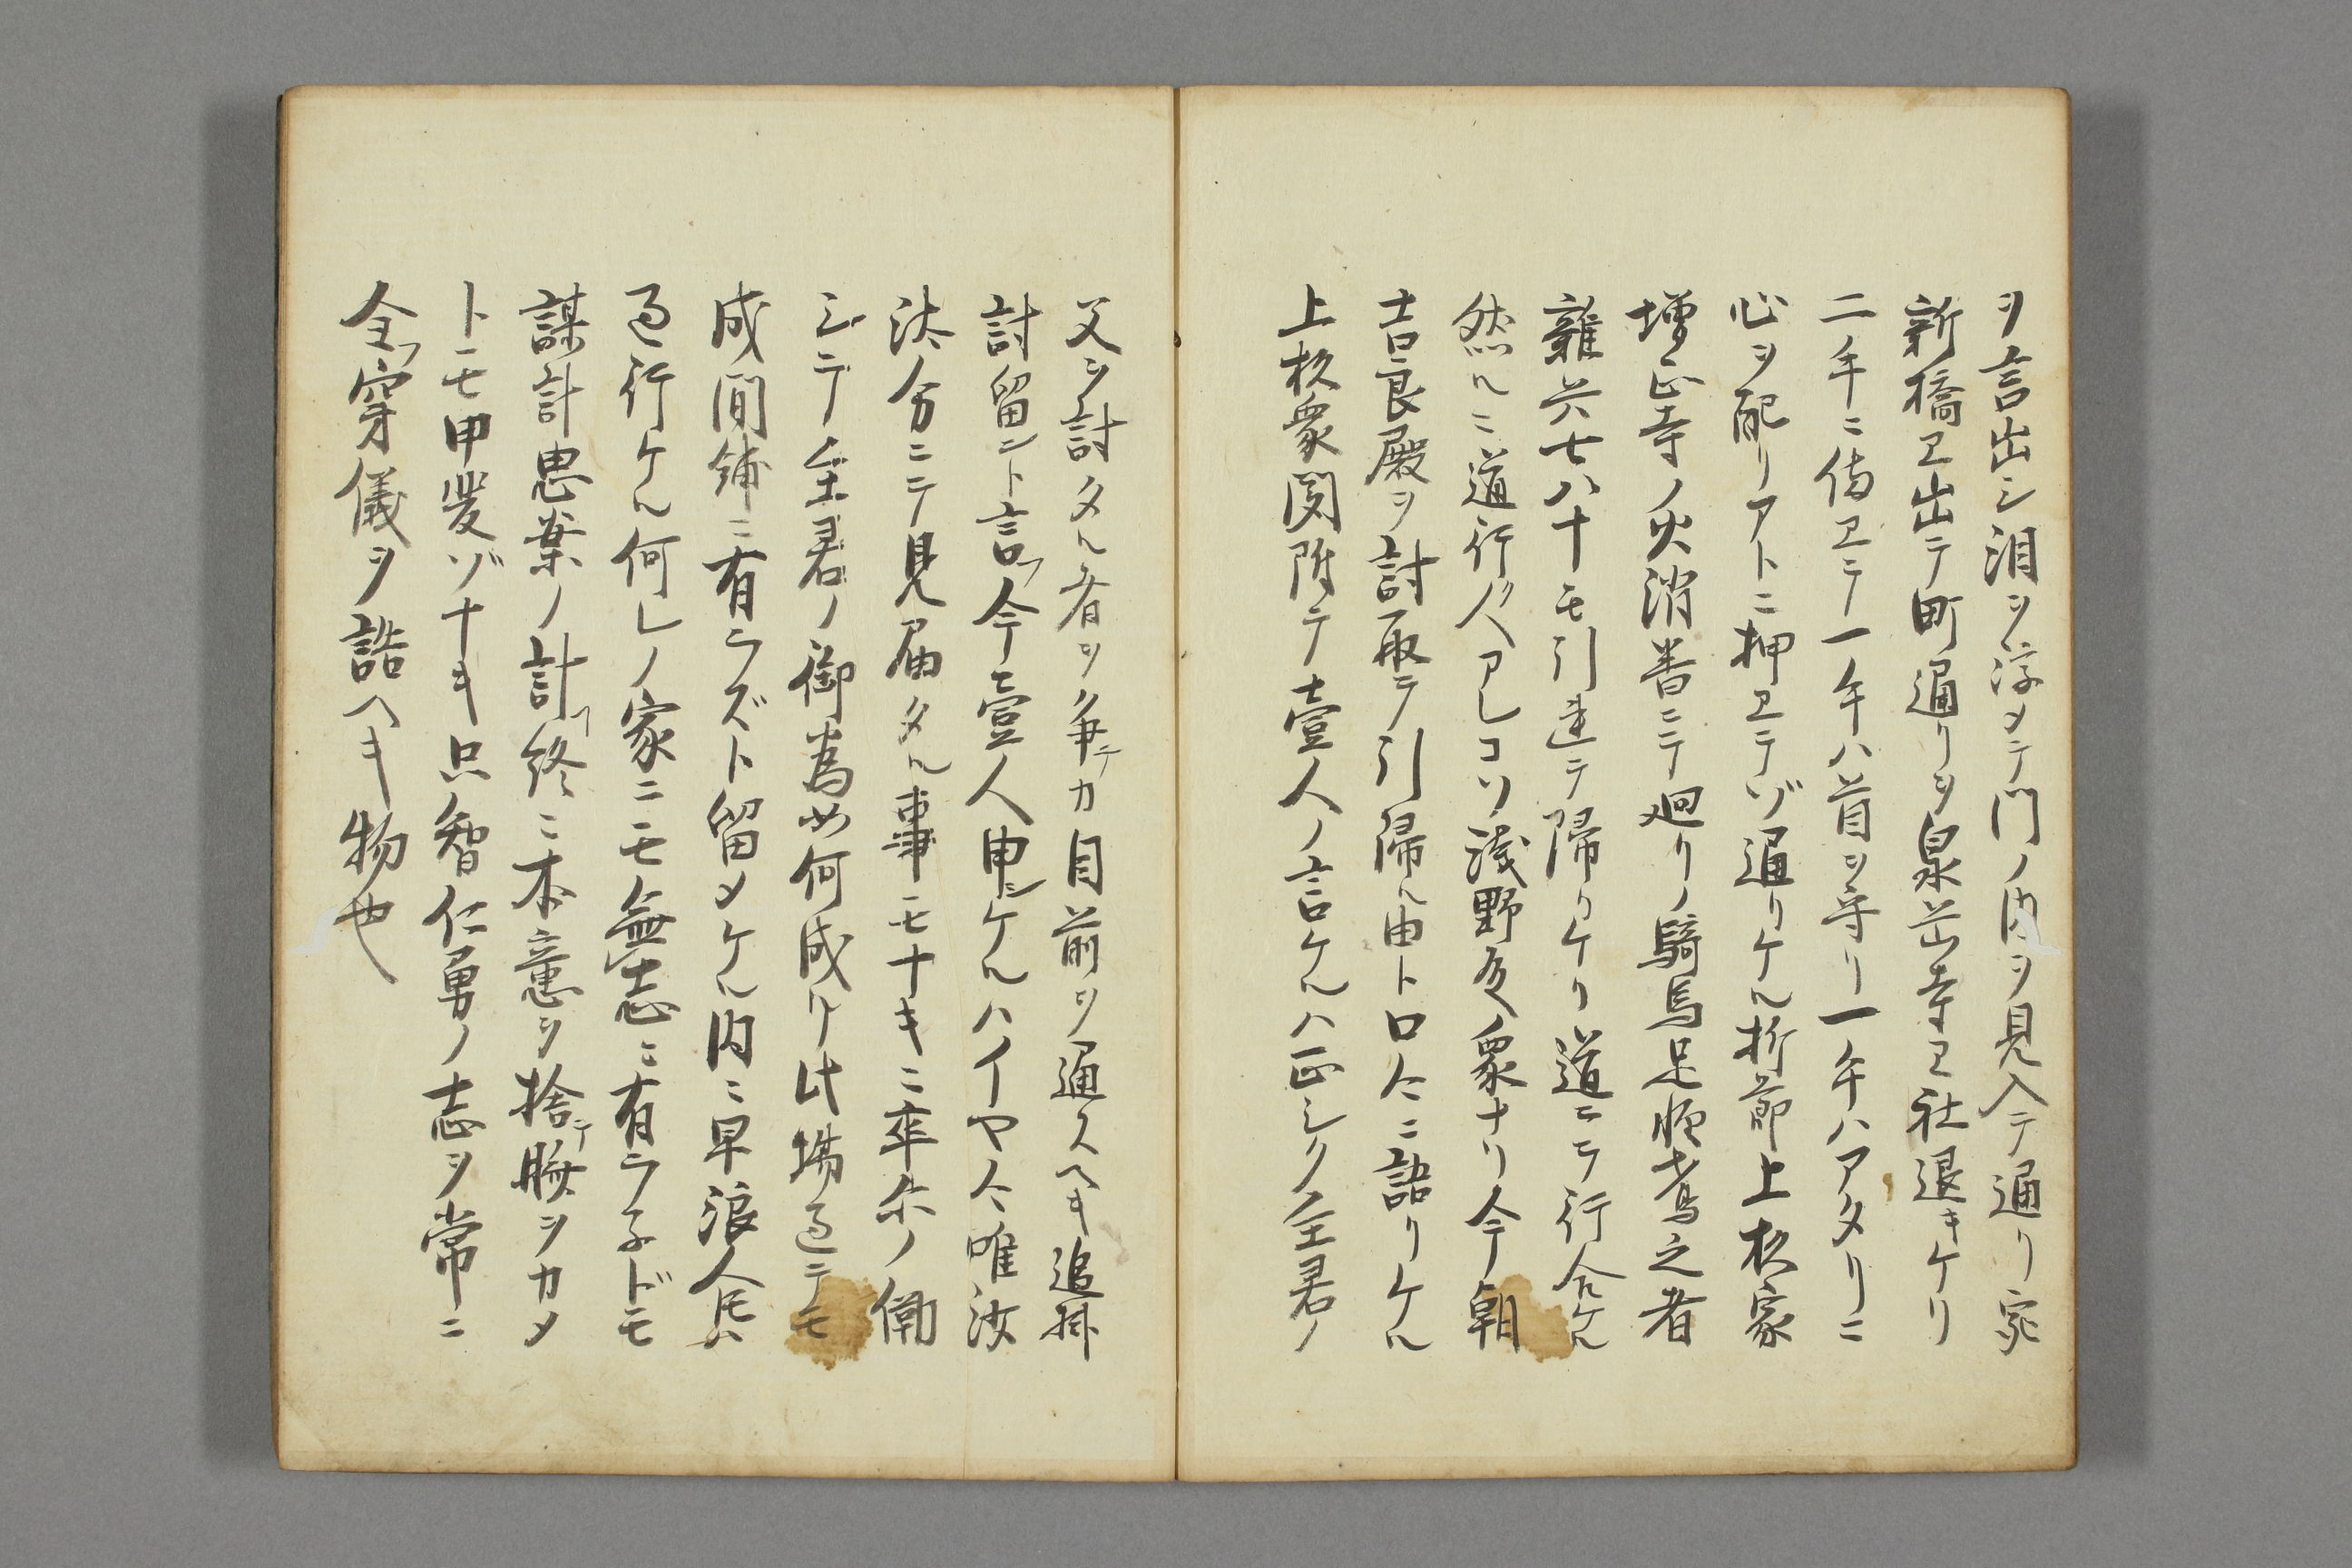 ヲ言出シ泪ヲ浮メテ門ノ内ヲ見入テ通リ宛
新橋ヱ出テ町通リヲ泉岳寺ヱ社退キケリ
二手ニ備ヱテ一手ハ首ヲ守リ一手ハアタリニ
心ヲ配リアトニ押ヱテゾ通リケル折節上杦家
増正寺ノ火消番ニテ廻リノ騎馬足軽鳶之者
雑兵七八十モ引連テ帰リケリ道ニテ行合ケル
然ルニ道行人アレコソ浅野家ノ衆ナリ今朝
吉良殿ヲ討取テ引帰ル由ト口々ニ語リケル
上杦衆聞附テ壹人ノ言ケルハ正シク主君ノ
父ヲ討タル者ヲ争テカ目前ヲ通スヘキ追掛
討留ント言フ今壹人申シケルハイヤ々唯汝
汰分ニテ見届タル事モナキニ卒尓ノ働
シテ主君ノ御為如何成リ此場過テモ
成間鋪ニ有ラズト留メケル内ニ早浪人共ハ
過行ケル何レノ家ニモ無志ニ有ラ子ドモ
謀計思案ノ計フ終ニ本意ヲ捨テ腕ヲカメ
トモ甲斐ゾナキ只智仁勇ノ志ヲ常ニ
全フ穿儀ヲ詰ヘキ物也